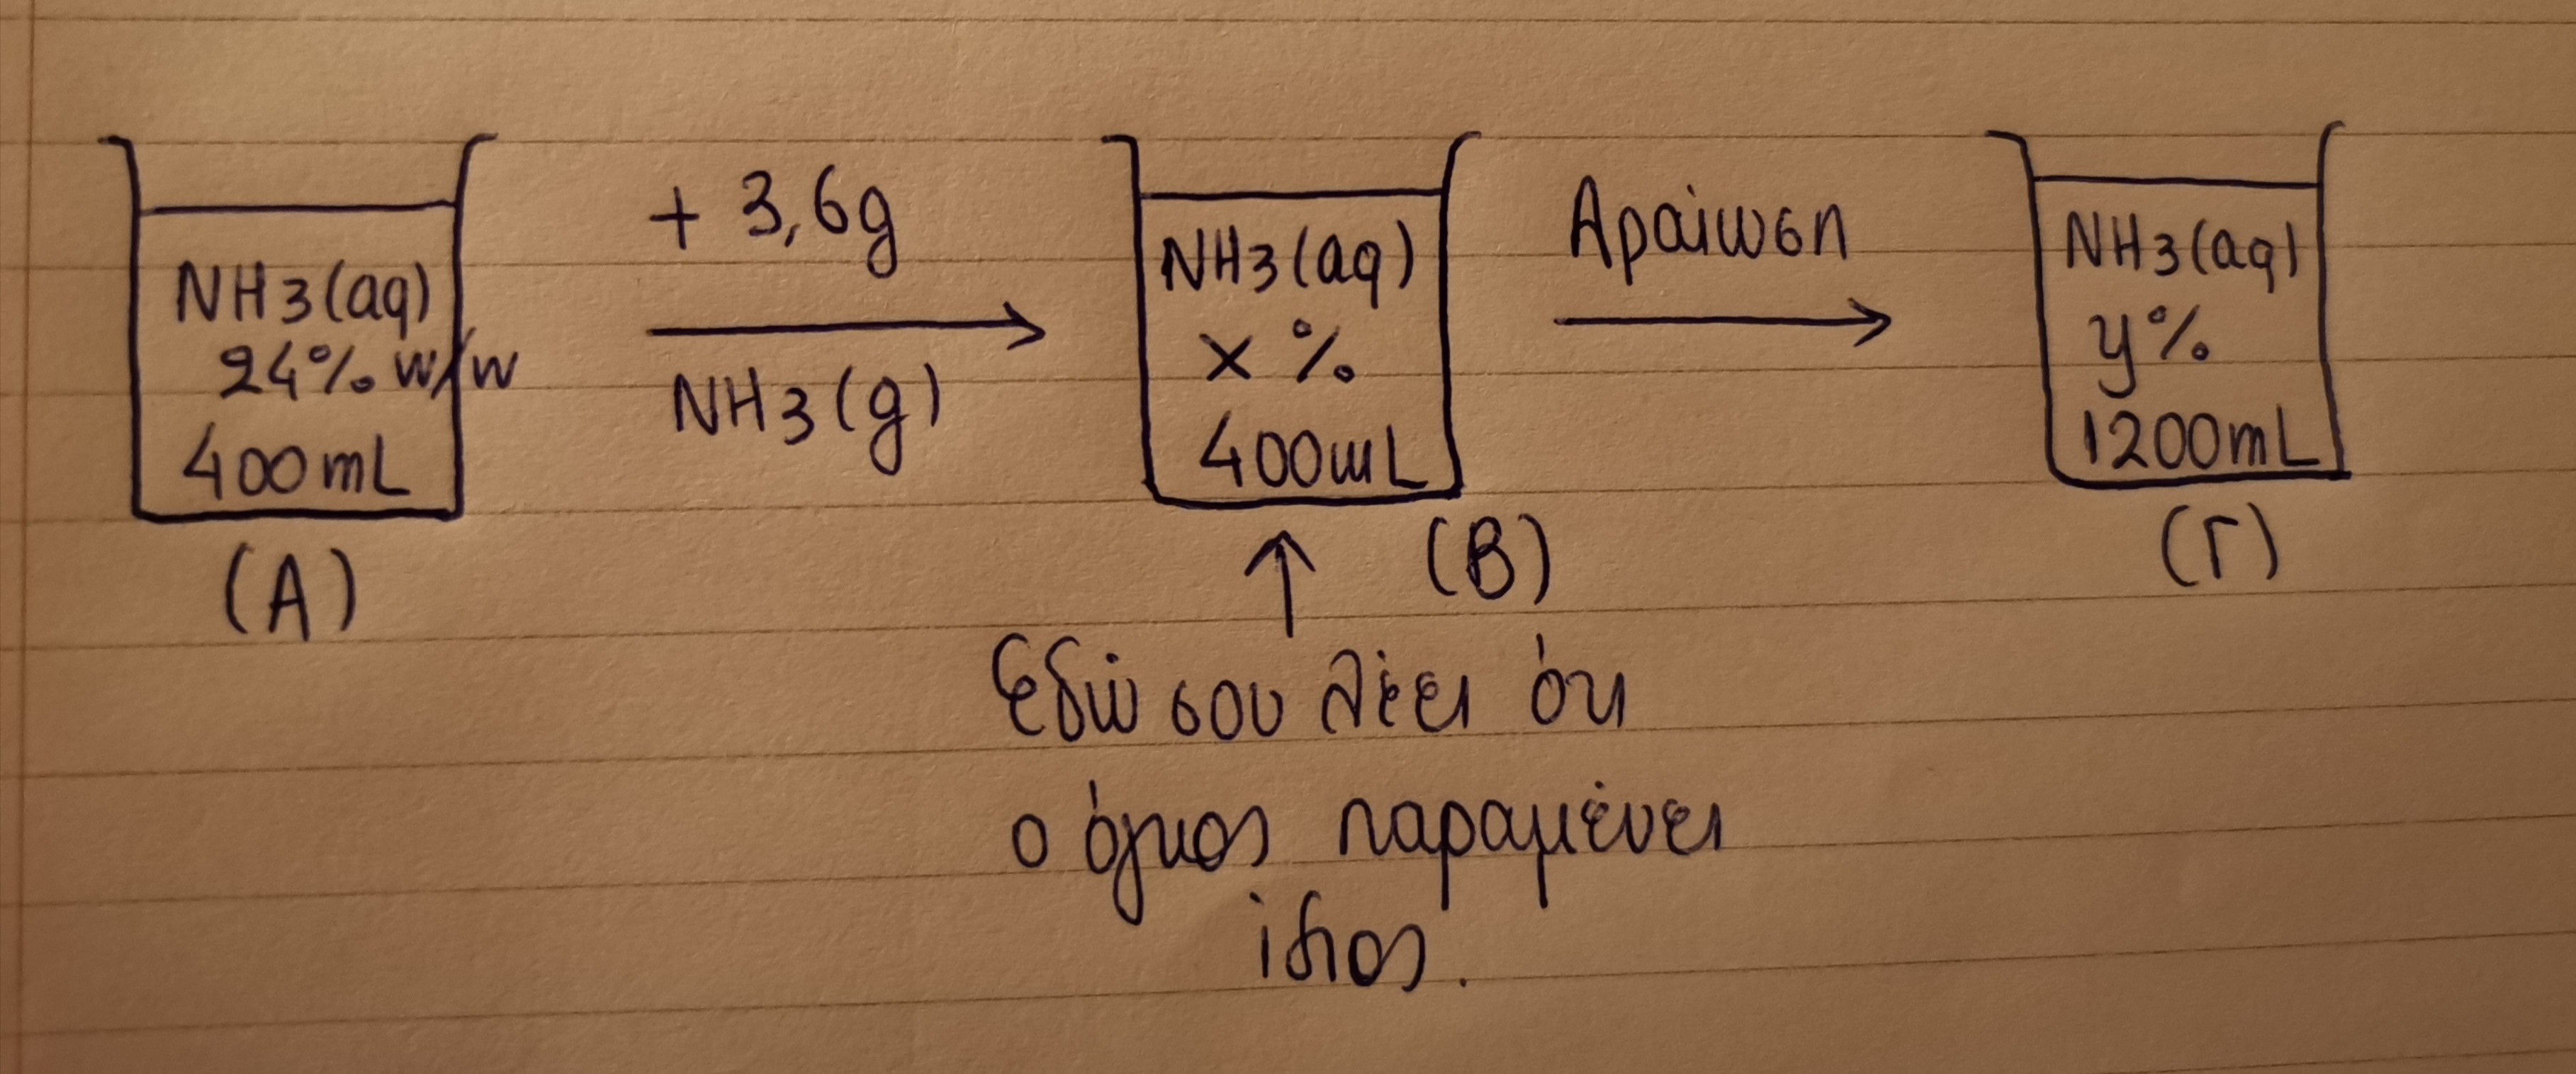 NH3(aq)
24% w/w
400mL
(A)
+ 3,6g
NH3(g)
NH3(aq)
x %
400mL
(B)
Αραίωση
NH3(aq)
y%
1200mL
(Γ)
Εδώ σου λέει ότι
ο όγκος παραμένει
ίδιος.